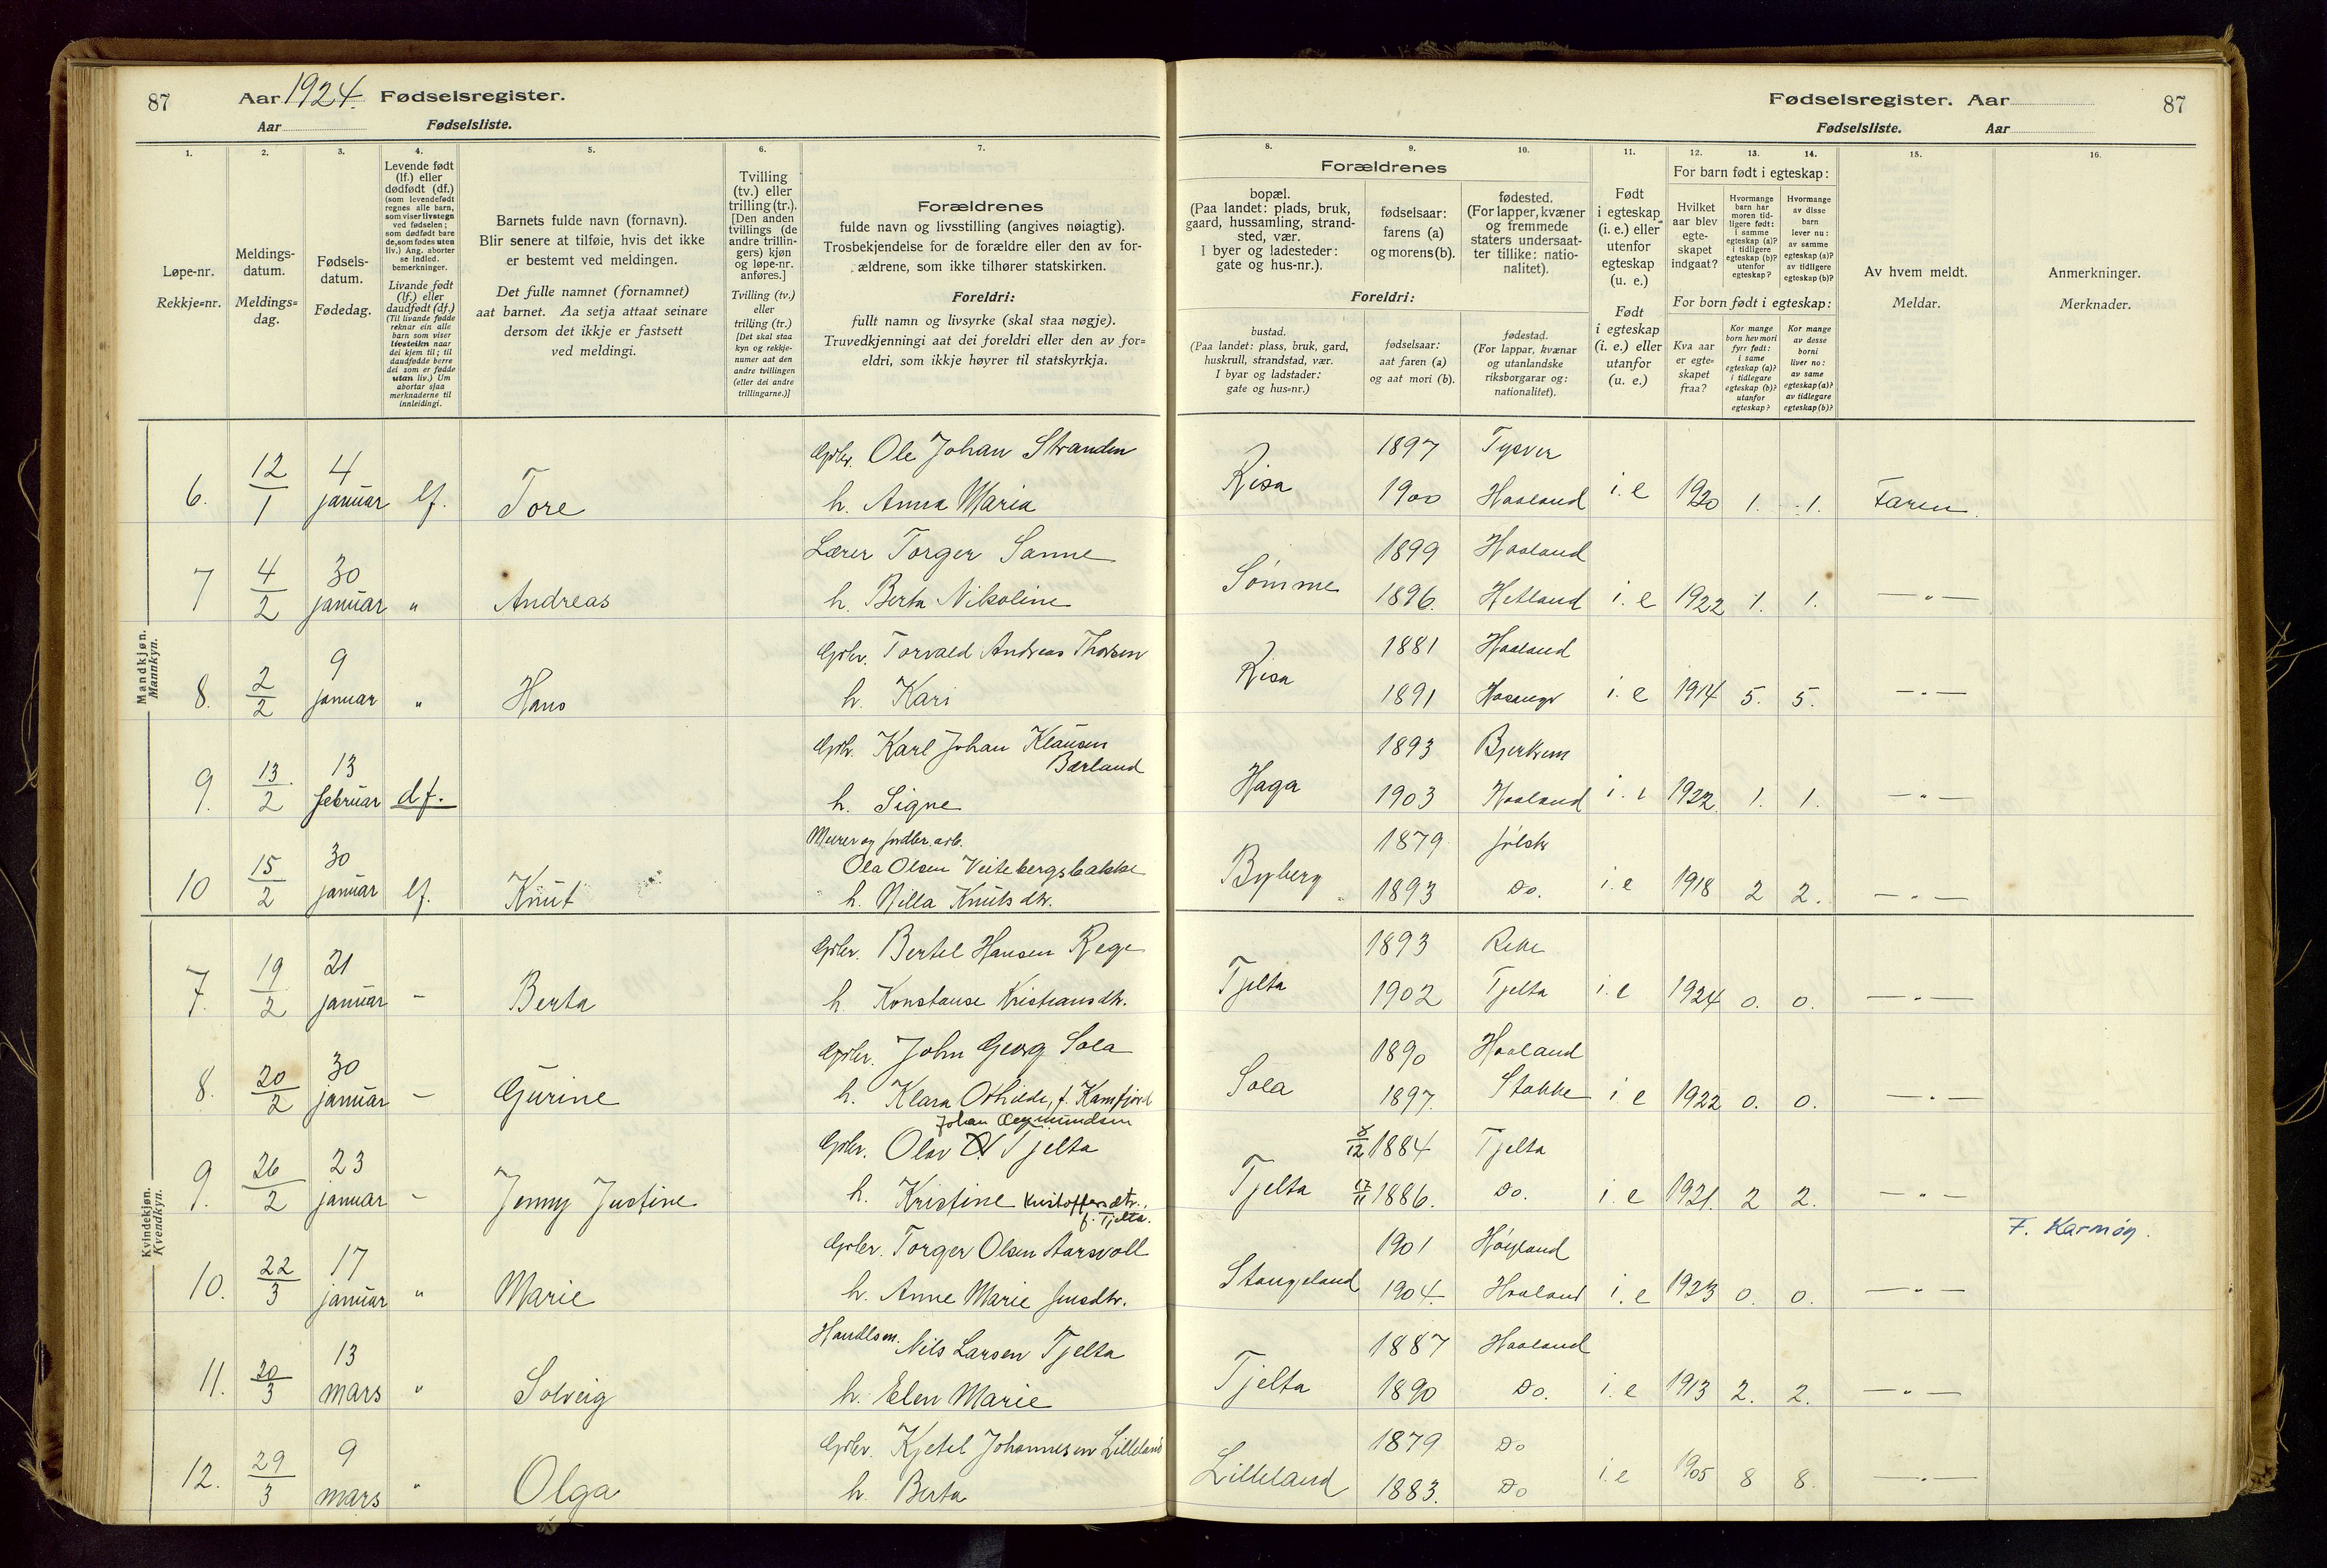 87 Aar 1924. Fødselsregister.
Aar Fødselsliste.
Fødselsregister. Aar 87
Fødselsliste. Aar
1. 2. 3. 4. 5. 6. 7. 8. 9. 10. 11. 12. 13. 14. 15. 16.
Løpe-nr.
Rekkje=nr.
Meldings-
datum.
Meldings=
dag.
Fødsels-
datum.
Fødedag.
Levende født
(lf.) eller
dødfødt (df.)
(som levendefødt
regnes alle barn,
som viser livstegn
ved fødselen;
som dødfødt bare
de, som fødes uten
liv.) Ang. aborter
se indled.
bemerkninger.
Livande født
(lf.) eller
daudfødt (df.)
(Til livande fødde
reknar ein alle
barn som viser
livsteikn naar
dei kjem til; til
daudfødde berre
dei som er fødde
utan liv.) Um
abortar sjaa
merknaderne til
innleidingi.
Barnets fulde navn (fornavn).
Blir senere at tilføie, hvis det ikke
er bestemt ved meldingen.
Det fulle namnet (fornamnet)
aat barnet. Aa setja attaat seinare
dersom det ikkje er fastsett
ved meldingi.
Tvilling
(tv.) eller
trilling (tr.).
[Den anden
tvillings (de
andre trillin-
gers) kjøn
og løpe-nr.
anføres.]
Tvilling (tv.)
eller
trilling (tr.)
[Det skal staa
kyn og rekkje-
numer aat den
andre tvillingen
(eller dei andre
trillingarne.)]
Forældrenes
fulde navn og livsstilling (angives nøiagtig).
Trosbekjendelse for de forældre eller den av for-
ældrene, som ikke tilhører statskirken.
Foreldri:
fullt namn og livsyrke (skal staa nøgje).
Truvedkjenningi aat dei foreldri eller den av for=
eldri, som ikkje høyrer til statskyrkja.
Forældrenes
bopæl.
(Paa landet: plads, bruk,
gaard, hussamling, strand-
sted, vær.
I byer og ladesteder:
gate og hus-nr.).
fødselsaar:
farens (a)
og morens (b).
fødested.
(For lapper, kvæner
og fremmede
staters undersaat-
ter tillike: natio-
nalitet).
Foreldri:
bustad.
(Paa landet: plass, bruk, gard,
huskrull, strandstad, vær.
I byar og ladstader:
gate og hus=nr.)
fødselsaar:
aat faren (a)
og aat mori (b).
fødestad.
(For lappar, kvænar
og utanlandske
riksborgarar og:
nationalitet).
Født
i egteskap
(i. e.) eller
utenfor
egteskap
(u. e.)
Født
i egteskap
(i. e.) eller
utanfor
(u. e.)
For barn født i egteskap:
Hvilket
aar blev
egte-
skapet
indgaat?
Hvormange
barn har
moren tid-
ligere født:
i samme
egteskap (a)?
i tidligere
egteskap (b)?
utenfor
egteskap?
Hvormange
av disse
barn
lever nu:
av samme
egteskap (a)?
av tidligere
egteskap (b)?
For born født i egteskap:
Kva aar
er egte=
skapet
fraa?
Kor mange
born hev mori
fyrr født:
i same
egteskap (a)?
i tidlegare
egteskap (b)?
utanfor
egteskap?
Kor mange
av desse
borni
liver no:
av same
egteskap (a)?
av tidlegare
egteskap (b)?
Av hvem meldt.
Meldar.
Anmerkninger.
Merknader.
Mandkjøn.
Mannkyn.
Gbr. Ole Johan Stranden 1897 Tysver
6. 12/1 4 januar lf. Tore h. Anna Maria Risa 1900 Haaland i. e 1920 1. 1. Faren
Lærer Torger Sanne 1899 Haaland
7 4/2 30 januar " Andreas h. Berta Nikoline Sømme 1896. Hetland i. e 1922 1. 1. — " —
Gbr. Torvald Andreas Thorsen 1881 Haaland
8. 2/2 9 januar " Hans h. Kari Risa 1891 i. e 1914 5. 5. — " —
Gbr. Karl Johan Klausen 1893 Bjerkrem
Bærland
9. 13/2 13 februar df. h. Signe Haga 1903 Haaland i. e 1922. 1. 1. — " —
Murer og 1879
Ola Olsen Veitebergsbakke
10 15/2 30 januar lf. Knut h. Nilla Knutsdtr. Byberg 1893 Do. i. e 1918 2 2. — " —
Kvindekjøn.
Kvendkyn.
Gbr. Bertel Hansen Rege 1893
7. 19/2 21 januar - Berta h. Konstanse Kristiansdtr. Tjelta 1902 Tjelta i. e 1924 0. 0. — " —
Gbr. John Georg Sola 1890 Haaland
8. 20/2 30 januar - Gurine h. Klara Othilde, f. Kamfjord Sola 1897. Stokke i e 1922 0. 0. — " —
Johan Aagmundsen
Gbr. Olav Tjelta 8/12 1884 Tjelta
9. 26/2 23 januar - Jenny Justine h. Kristine Kristoffersdtr., Tjelta 17/11 1886. Do. i. e 1921. 2 2. — " —
f. Tjelta. F. Karmøy.
Gbr. Torger Olsen Aarsvoll 1901 Høyland
10. 22/3 17 januar " Marie h. Anne Marie Jensdtr. Stangeland 1904. Haaland i. e 1923 0. 0. — " —
Handlsm. Nils Larsen Tjelta 1887 Haaland
11. 20/3 13 mars " Solveig h. Elen Marie Tjelta 1890 Do. i. e 1913 2. 2. — " —
Gbr. Kjetel Johannesen Lilleland 1879 Do
12. 29/3 9 mars " Olga h. Berta Lilleland 1883. Do i. e 1905 8 8. — " —